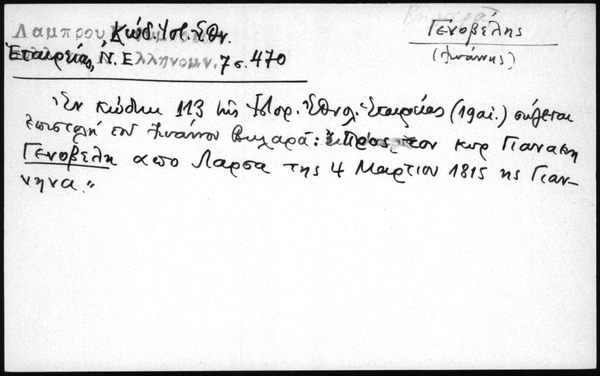 Λαμπρου Κώδ. Ἱσ. Ἐθν.
Ἑταιρείας, Ν. Ελληνομν. 7 σ. 470
Γενοβέλης
(Ἰωάννης)
Ἐν κώδικι 113 τῆς Ἱστορ. Ἐθνολ. Ἑταιρείας (19 αἰ.) σώζεται
ἐπιστολὴ τοῦ Ἰωάννου Βηλαρᾶ: Προς τον κυρ Γιανακη
Γενοβέλη απο Λαρσα της 4 Μαρτιου 1815 ης Γιαν-
νηνα."